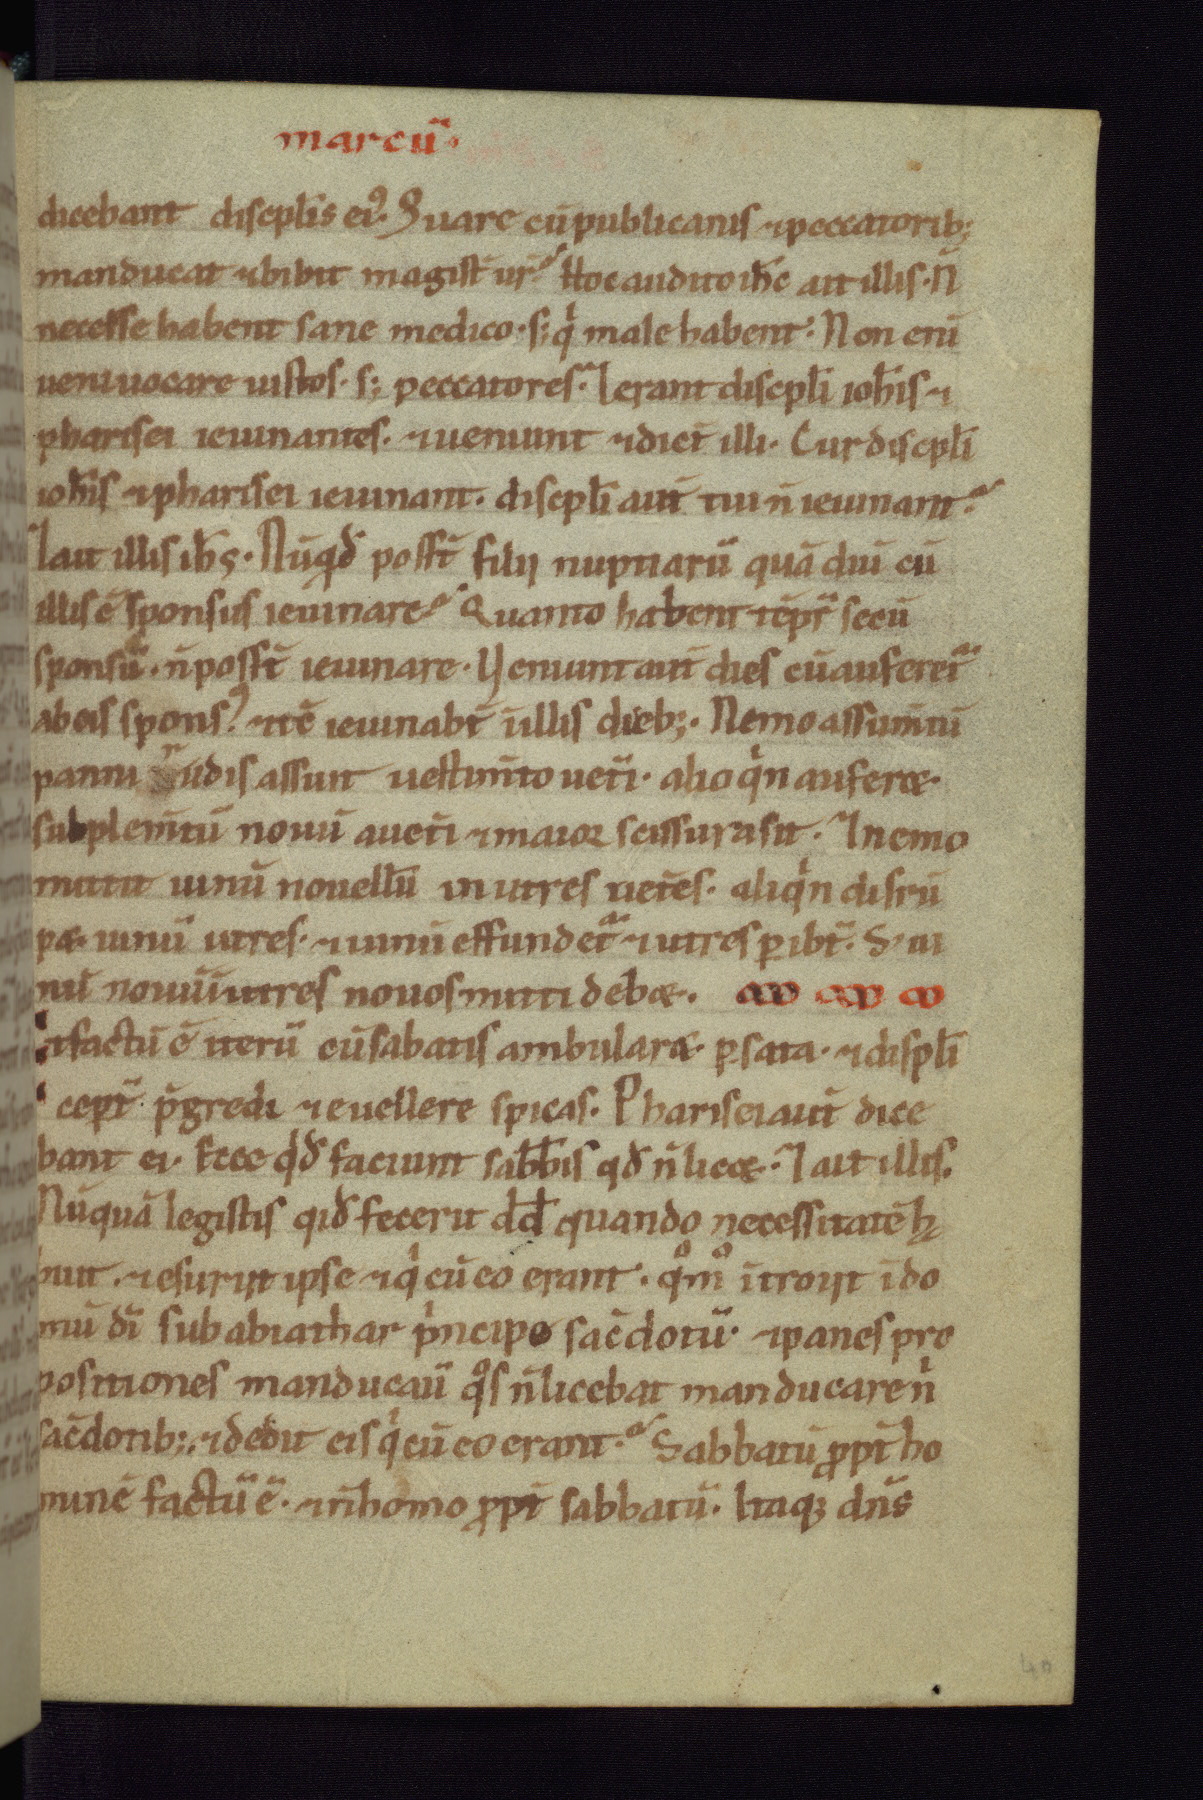 marcū·
dicebant discplīs ei᷒· Quare cū publicanis ⁊ peccatorib;
manducat ⁊ bibit magist̄ ur̄? Hoc audito ih̄c ait illis· N̄
necesse habent sane medico· s; qͥ male habent· Non enī
ueni uocare iustos· s; peccatores· ⁊ erant discplī ioh̄is ⁊
pharisei ieiunantes· ⁊ ueniunt ⁊ dict̄ illi· Cur discplī
ioh̄is ⁊ pharisei ieiunant· discplī aut̄ tui n̄ ieiunant?
⁊ ait illis ih̄s· Nūqd̄ posst̄ filij nuptiarū quā diu cū
illis ē sponsus ieiunare? Quanto habent tēpr̄ secū
sponsū· n̄ posst̄ ieiunare· Veniunt aut̄ dies cū auferet᷑
ab eis spons᷒· ⁊ tē ieiunabt̄ ī illis dieb;· Nemo assumtū
panni rudis assuit uestim̄to uet̄i· alioqͥn aufert·
subplem̄tū nouū a uet̄i ⁊ maior scissura sit· ⁊ nemo
mittit uinū nouellū in utres uet̄es· aliqͥn disrū
pet uinū utres· ⁊ uinū effundet᷑ ⁊ utres ꝑibt̄· S; ui
nū nouū ī utres nouos mitti debet·
⁊ factū ē iterū cū sabatis ambularet· ꝑ sata· ⁊ displī
cept̄ p̄gredi ⁊ euellere spicas· Pharisei aut̄ dice
bant ei· Ecce qͥd̄ faciunt sabb̄is qd̄ n̄ licet· ⁊ ait illis·
Nūquā legistis qid̄ fecerit dd̄ quando necessitatē h
buit· ⁊ esurijt ipse ⁊ qͥ cū eo erant· qͦmͦ ītroijt ī do
mū dī sub abiathar pͥncipe sac̄dotū· ⁊ panes pro
positiones manducauī qͦs n̄ licebat manducare nͥ
sac̄dotib;· ⁊ dedit eis qͥ cū eo erant? Sabbatū ꝓpt̄ ho
minē factū ē· ⁊ n̄ homo ꝓpt̄ sabbatū· Itaq; dn̄s
40